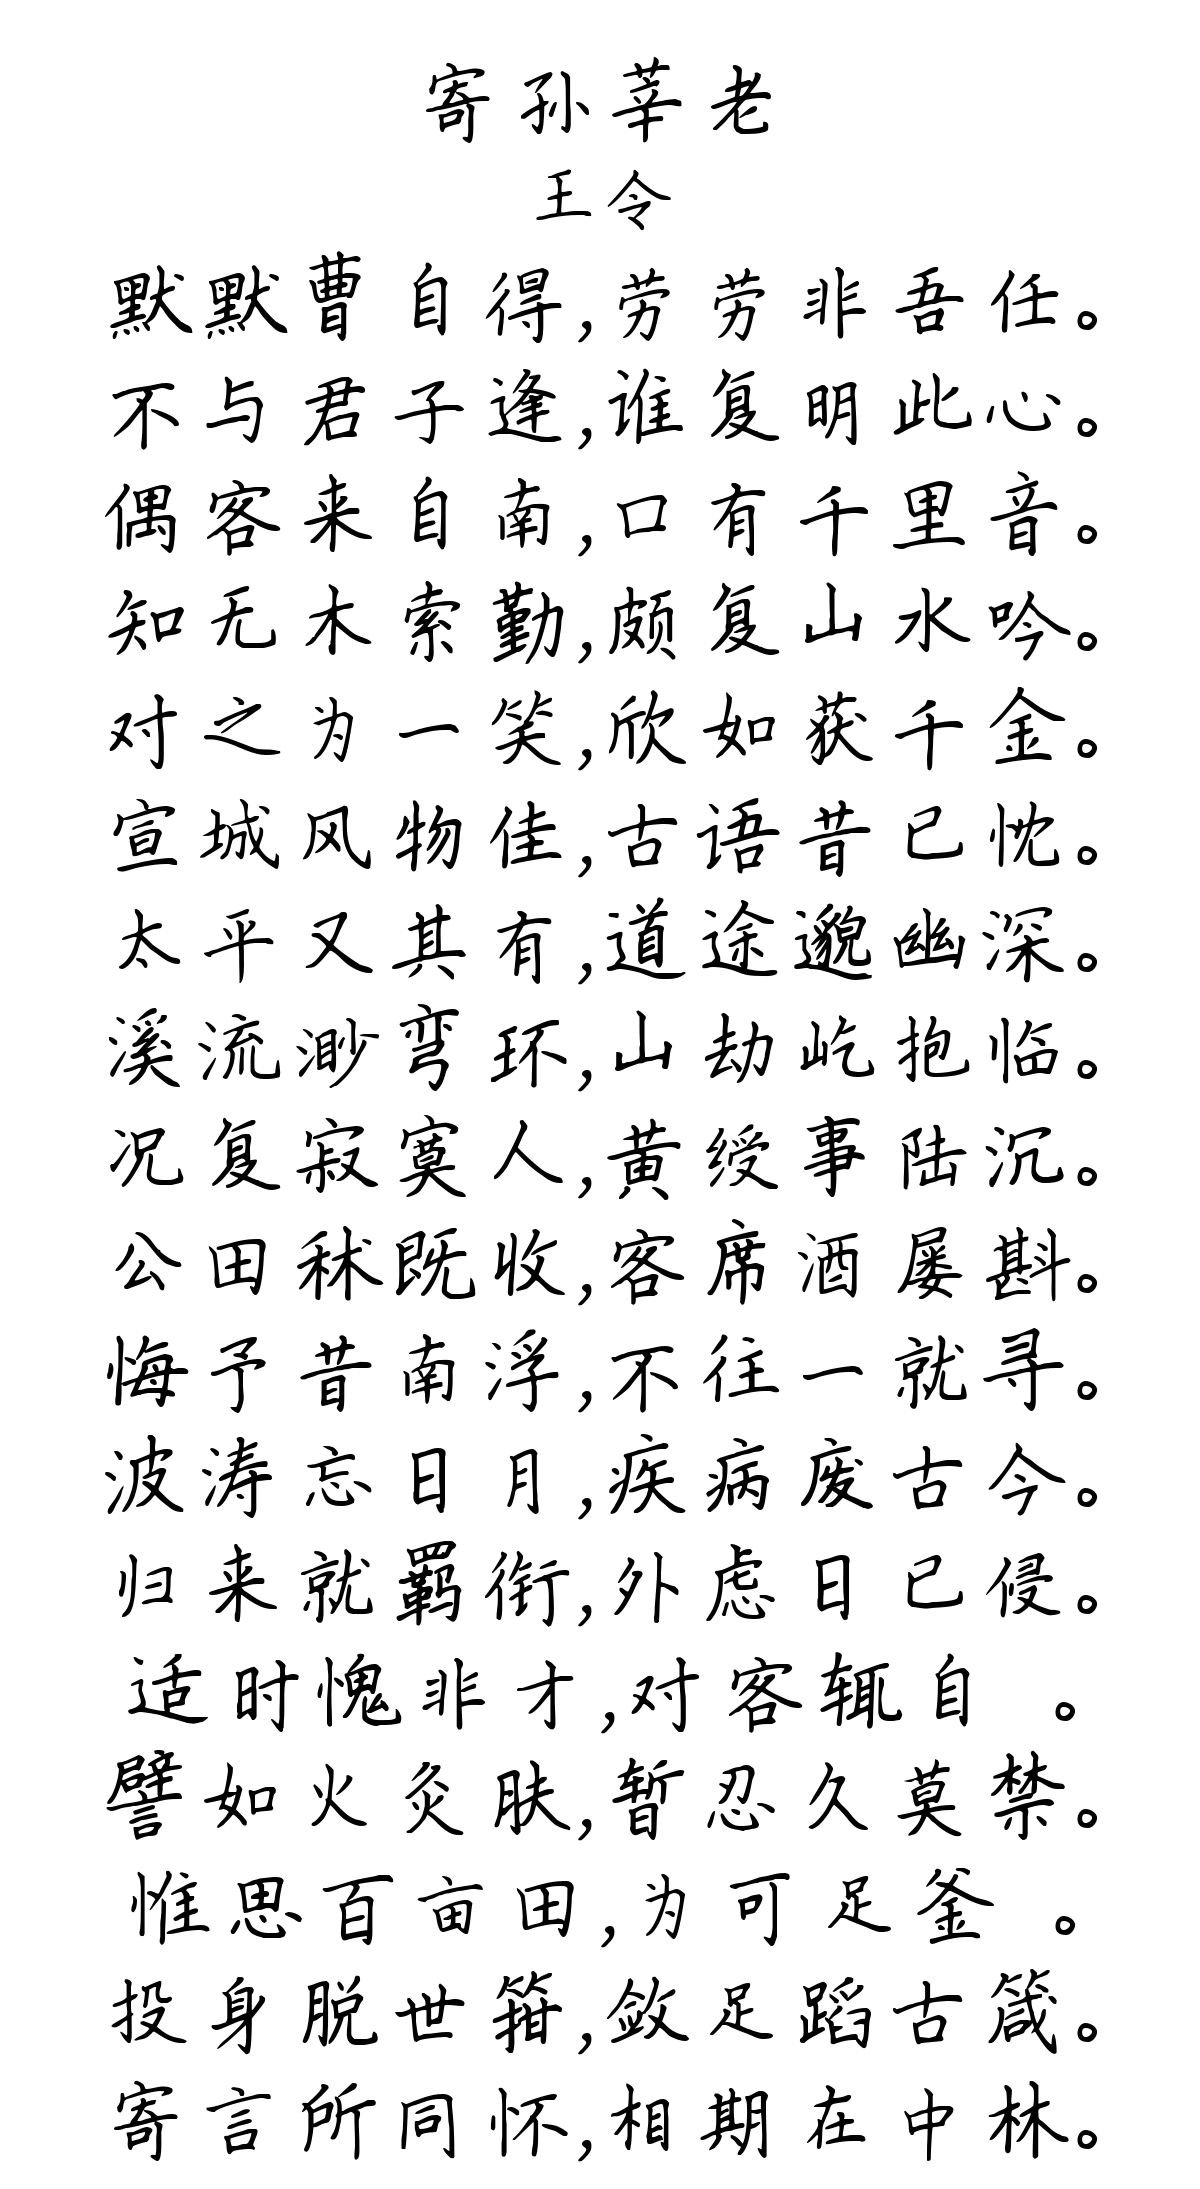 寄孙莘老
王令
默默曹自得,劳劳非吾任。
不与君子逢,谁复明此心。
偶客来自南,口有千里音。
知无木索勤,颇复山水吟。
对之为一笑,欣如获千金。
宣城风物佳,古语昔已忱。
太平又其有,道途邈幽深。
溪流渺弯环,山劫屹抱临。
况复寂寞人,黄绶事陆沉。
公田秫既收,客席酒屡斟。
悔予昔南浮,不往一就寻。
波涛忘日月,疾病废古今。
归来就羁衔,外虑日已侵。
适时愧非才,对客辄自 。
譬如火灸肤,暂忍久莫禁。
惟思百亩田,为可足釜 。
投身脱世箝,敛足蹈古箴。
寄言所同怀,相期在中林。